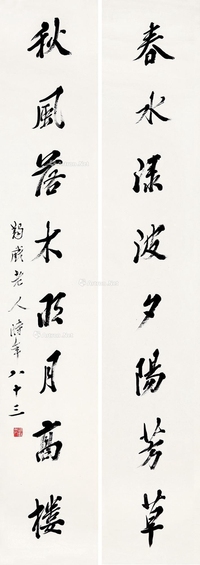 春水渌波夕阳芳草
秋風落木明月高樓
老人時年八十三